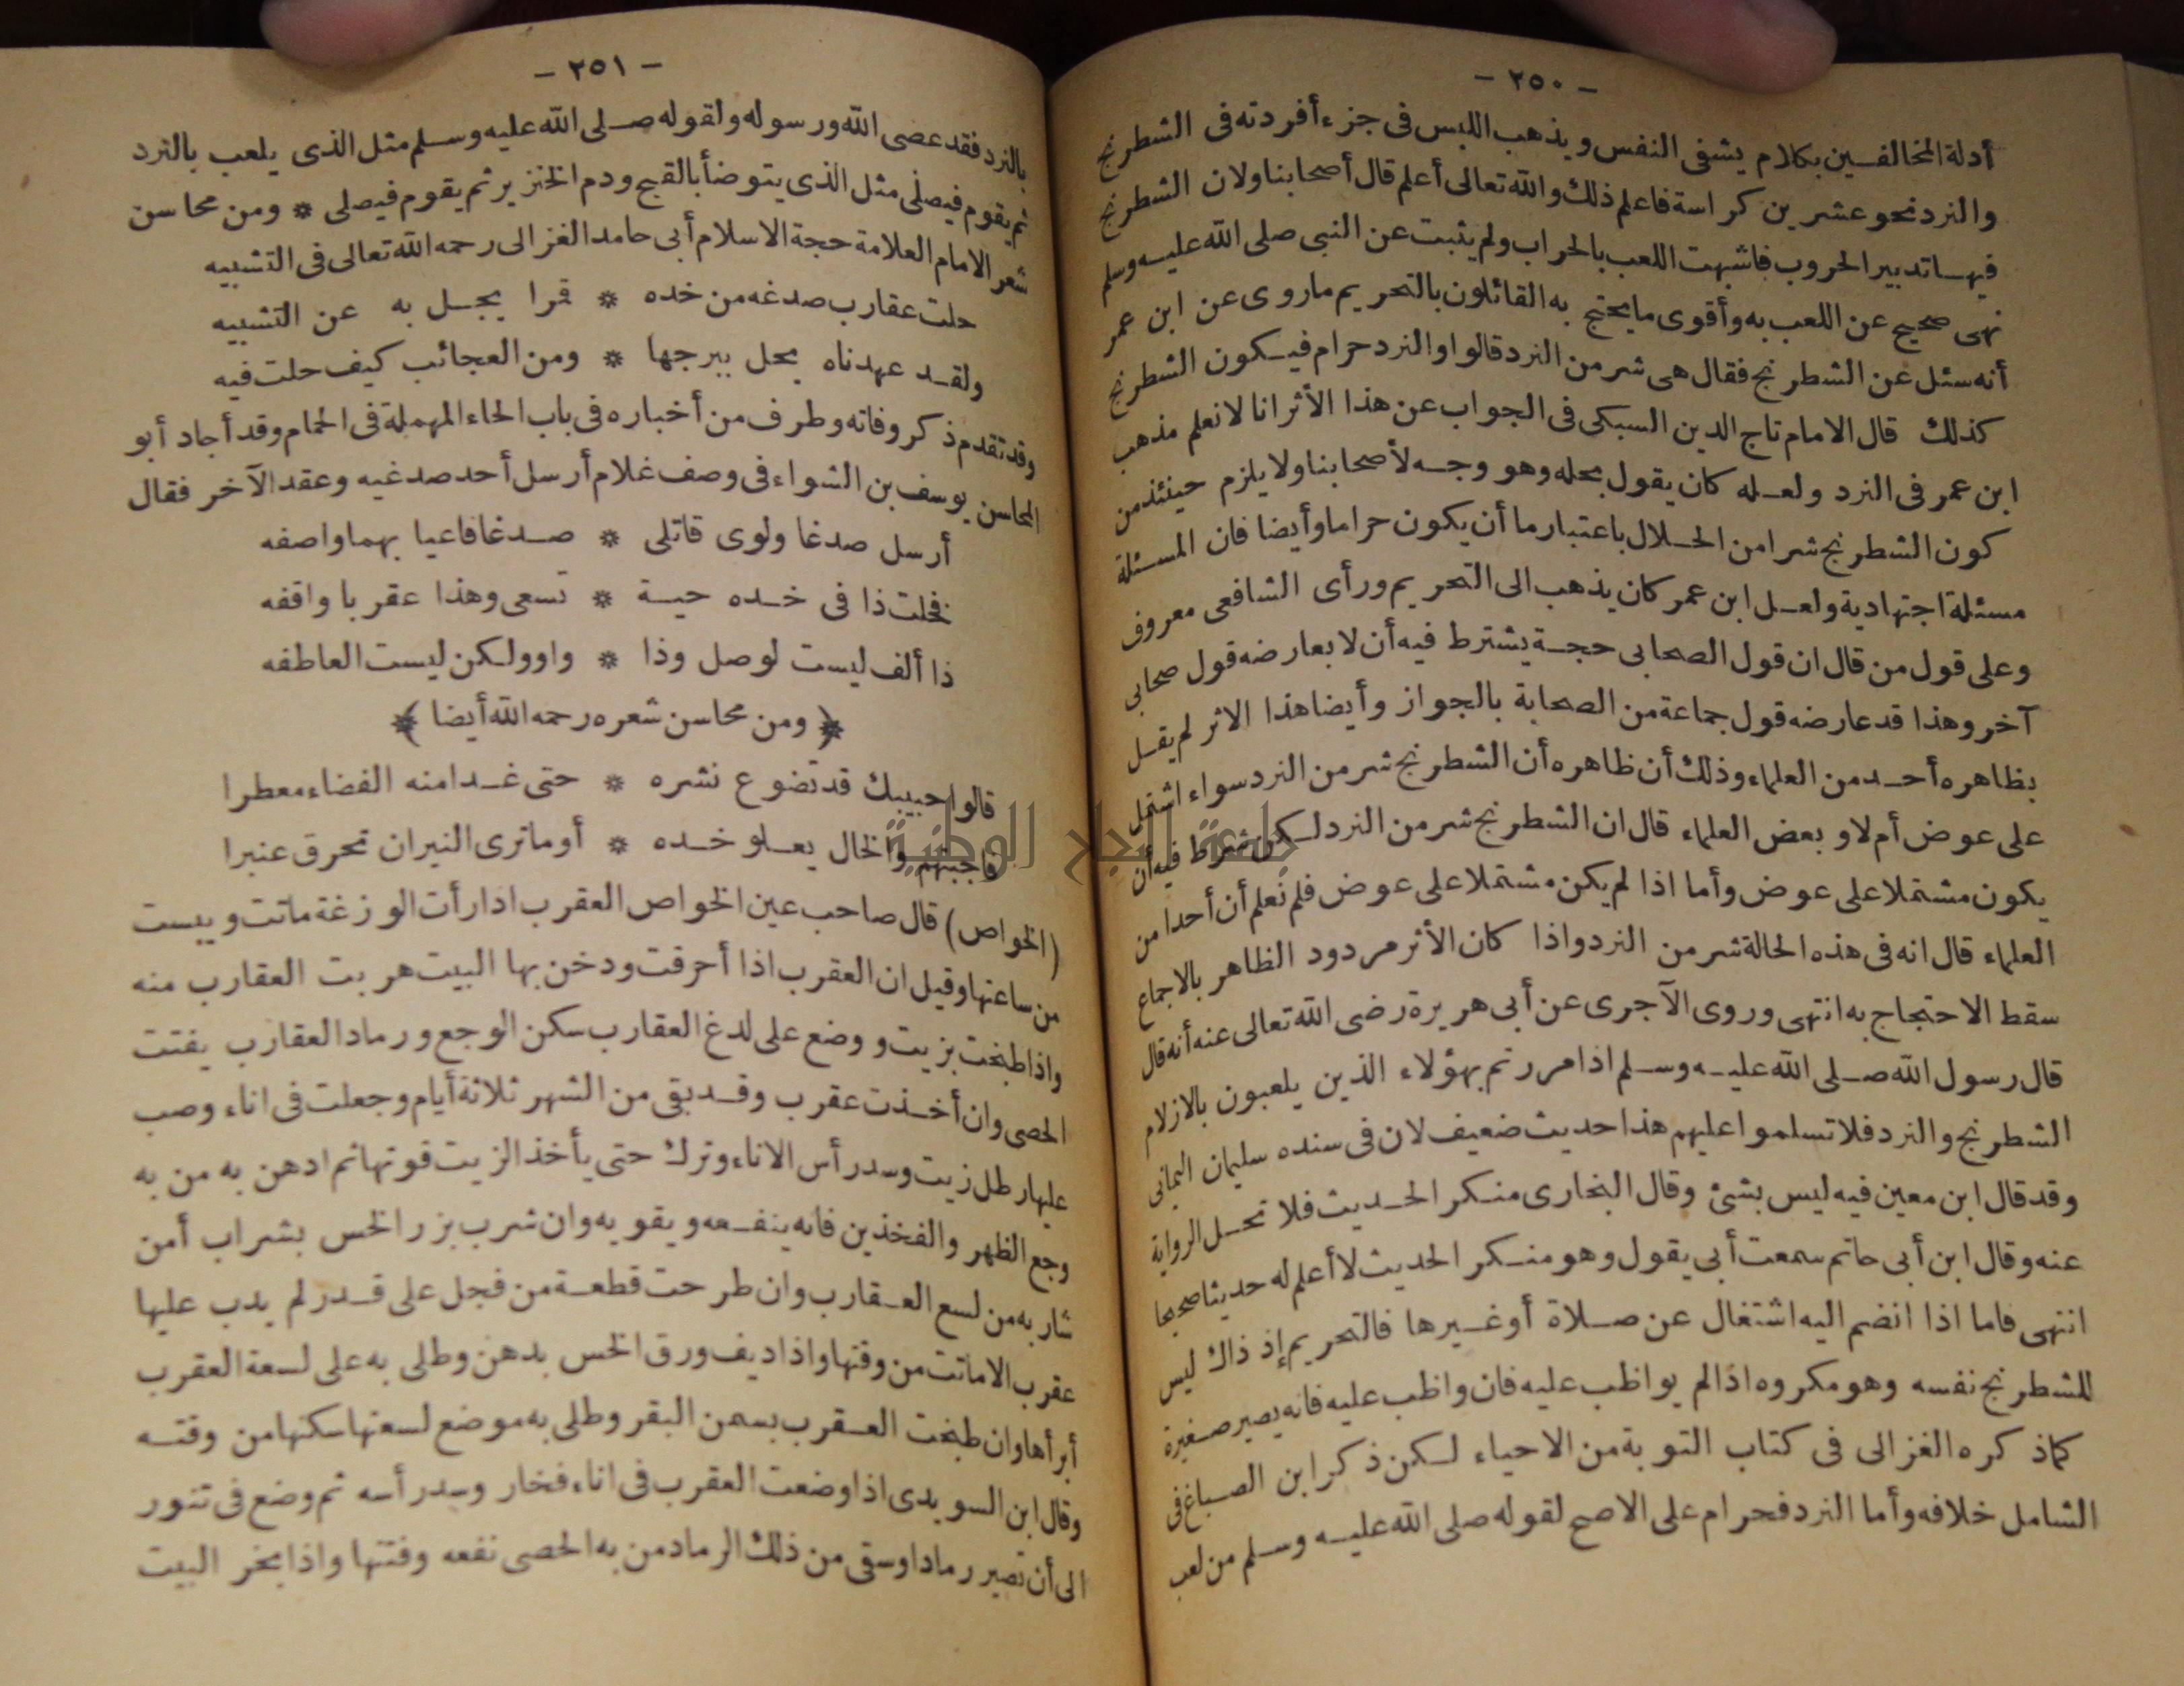 - ٢٥٠ -
أدلة المخالفين بكلام يشفى النفس ويذهب اللبس فى جزء أفردته فى الشطرنج
والنرد نحو عشرين كراسة فاعلم ذلك والله تعالى أعلم قال أصحابنا ولان الشطرنج
فيها تدبير الحروب فاشبهت اللعب بالحراب ولم يثبت عن النبى صلى الله عليه وسلم
نهى صحيح عن اللعب به وأقوى ما يحتج به القائلون بالتحريم ماروى عن ابن عمر
أنه سئل عن الشطرنج فقال هى شر من النرد قالوا والنرد حرام فيكون الشطرنج
كذلك قال الامام تاج الدين السبكى فى الجواب عن هذا الأثر انا لا نعلم مذهب
ابن عمر فى النرد ولعله كان يقول بحله وهو وجه لأصحابنا ولا يلزم حينئذ من
كون الشطرنج شرا من الحلال باعتبار ما أن يكون حراما وأيضا فان المسئلة
مسئلة اجتهادية ولعل ابن عمر كان يذهب الى التحريم ورأى الشافعى معروف
وعلى قول من قال ان قول الصحابى حجة يشترط فيه أن لا يعارضه قول صحابى
آخر وهذا قد عارضه قول جماعة من الصحابة بالجواز وأيضا هذا الاثر لم يقل
بظاهره أحد من العلماء وذلك أن ظاهره أن الشطرنج شر من النرد سواء اشتمل
على عوض أم لا وبعض العلماء قال ان الشطرنج شر من النرد لكن شرط فيه أن
يكون مشتملا على عوض وأما اذا لم يكن مشتملا على عوض فلم نعلم أن أحدا من
العلماء قال انه فى هذه الحالة شر من النرد واذا كان الأثر مردود الظاهر بالاجماع
سقط الاحتجاج به انتهى وروى الآجرى عن أبى هريرة رضى الله تعالى عنه أنه قال
قال رسول الله صلى الله عليه وسلم اذا مررتم بهؤلاء الذين يلعبون بالازلام
الشطرنج والنرد فلا تسلموا عليهم هذا حديث ضعيف لان فى سنده سليمان اليمانى
وقد قال ابن معين فيه ليس بشئ وقال البخارى منكر الحديث فلا تحل الرواية
عنه وقال ابن أبى حاتم سمعت أبى يقول وهو منكر الحديث لا أعلم له حديثا صحيحا
انتهى فاما اذا انضم اليه اشتغال عن صلاة أو غيرها فالتحريم إذ ذاك ليس
للشطرنج نفسه وهو مكروه اذا لم يواظب عليه فان واظب عليه فانه يصير صغيرة
كما ذكره الغزالى فى كتاب التوبة من الاحياء لكن ذكر ابن الصباغ فى
الشامل خلافه وأما النرد فحرام على الاصح لقوله صلى الله عليه وسلم من لعب
- ٢٥١ -
بالنرد فقد عصى الله ورسوله ولقوله صلى الله عليه وسلم مثل الذى يلعب بالنرد
ثم يقوم فيصلى مثل الذى يتوضأ بالقيح ودم الخنزير ثم يقوم فيصلى * ومن محاسن
شعر الامام العلامة حجة الاسلام أبى حامد الغزالى رحمه الله تعالى فى التشبيه
حلت عقارب صدغه من خده * قمرا يجل به عن التشبيه
ولقد عهدناه يحل ببرجها * ومن العجائب كيف حلت فيه
وقد تقدم ذكر وفاته وطرف من أخباره فى باب الحاء المهملة فى الحمام وقد أجاد أبو
المحاسن يوسف بن الشواء فى وصف غلام أرسل أحد صدغيه وعقد الآخر فقال
أرسل صدغا ولوى قاتلى * صدغا فاعيا بهما واصفه
فخلت ذا فى خده حية * تسعى وهذا عقربا واقفه
ذا ألف ليست لوصل وذا * واو ولكن ليست العاطفه
﴿ ومن محاسن شعره رحمه الله أيضا ﴾
قالوا حبيبك قد تضوع نشره * حتى غدا منه الفضاء معطرا
فاجبتهم والخال يعلو خده * أوما ترى النيران تحرق عنبرا
(الخواص) قال صاحب عين الخواص العقرب اذا رأت الوزغة ماتت ويبست
من ساعتها وقيل ان العقرب اذا أحرقت ودخن بها البيت هربت العقارب منه
واذا طبخت بزيت ووضع على لدغ العقارب سكن الوجع ورماد العقارب يفتت
الحصى وان أخذت عقرب وقد بقى من الشهر ثلاثة أيام وجعلت فى اناء وصب
عليها رطل زيت وسد رأس الاناء وترك حتى يأخذ الزيت قوتها ثم ادهن به من به
وجع الظهر والفخذين فانه ينفعه ويقويه وان شرب بزر الخس بشراب أمن
شاربه من لسع العقارب وان طرحت قطعة من فجل على قدر لم يدب عليها
عقرب الا ماتت من وقتها واذا ديف ورق الخس بدهن وطلى به على لسعة العقرب
أبرأها وان طبخت العقرب بسمن البقر وطلى به موضع لسعتها سكنها من وقته
وقال ابن السويدى اذا وضعت العقرب فى اناء فخار وسد رأسه ثم وضع فى تنور
الى أن تصير رمادا وسقى من ذلك الرماد من به الحصى نفعه وفتتها واذا بخر البيت
جامعة النجاح الوطنية